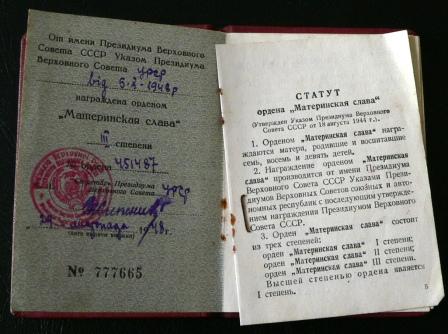 От имени Президиума Верховного
Совета СССР Указом Президиума
Верховного Совета УРСР
від 5-X-1948р
награждена орденом
„Материнская слава"
III степени
ордена 451487
Президиума
Верховного Совета УРСР
29 листопада 1948г.
№ 777665
СТАТУТ
ордена „Материнская слава"
(Утвержден Указом Президиума Верховного
Совета СССР от 18 августа 1944 г.)
1. Орденом „Материнская слава" награ-
ждаются матери, родившие и воспитавшие
семь, восемь и девять детей.
2. Награждение орденом „Материнская
слава" производится от имени Президиума
Верховного Совета СССР Указами Президи-
умов Верховных Советов союзных и авто-
номных республик с последующим утвержде-
нием награждения Президиумом Верховного
Совета СССР.
3. Орден „Материнская слава" состоит
из трех степеней:
орден „Материнская слава" I степени;
орден „Материнская слава" II степени;
орден „Материнская слава" III степени.
Высшей степенью ордена является
I степень.
5